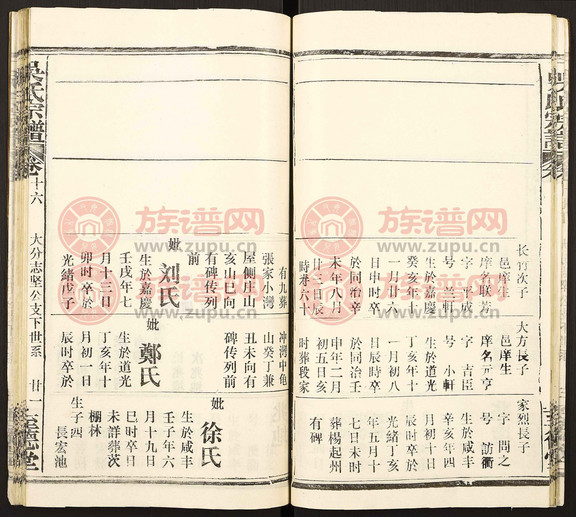 吳氏宗譜
長竹次子
邑庠生
庠名联芳
字 平成
号 竺軒
生於嘉慶
癸亥年十
一月廿八
日申時卒
於同治辛
未年八月
廿三日辰
時寿六十
有九葬
張家小灣
屋側庄山
亥山巳向
有碑传列
前
妣 刘氏
生於嘉慶
壬戌年七
月十三日
卯时卒於
光緒戊子
大方長子
邑庠生
庠名元亨
字 吉臣
号 小軒
生於道光
丁亥年十
一月初八
日辰時卒
於同治壬
申年二月
初五日亥
时葬段家
冲灣中龟
山癸丁兼
丑未向有
碑传列前
妣 鄭氏
生於道光
丁亥年十
月初一日
辰时卒於
家烈長子
字 問之
号 訪衢
生於咸丰
辛亥年四
月初十日
辰时卒於
光緒丁亥
年五月十
七日未时
葬楊起州
有碑
妣 徐氏
生於咸丰
壬子年六
月十九日
巳时卒日
未詳葬茨
棚林
生子四
長宏池
吳氏宗譜
卷十六
大分志堅公支下世系
廿一
至德堂
族谱网
www.zupu.cn
族谱网
www.zupu.cn